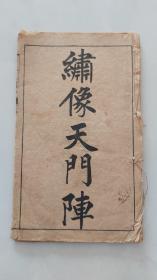 繡像天門陣